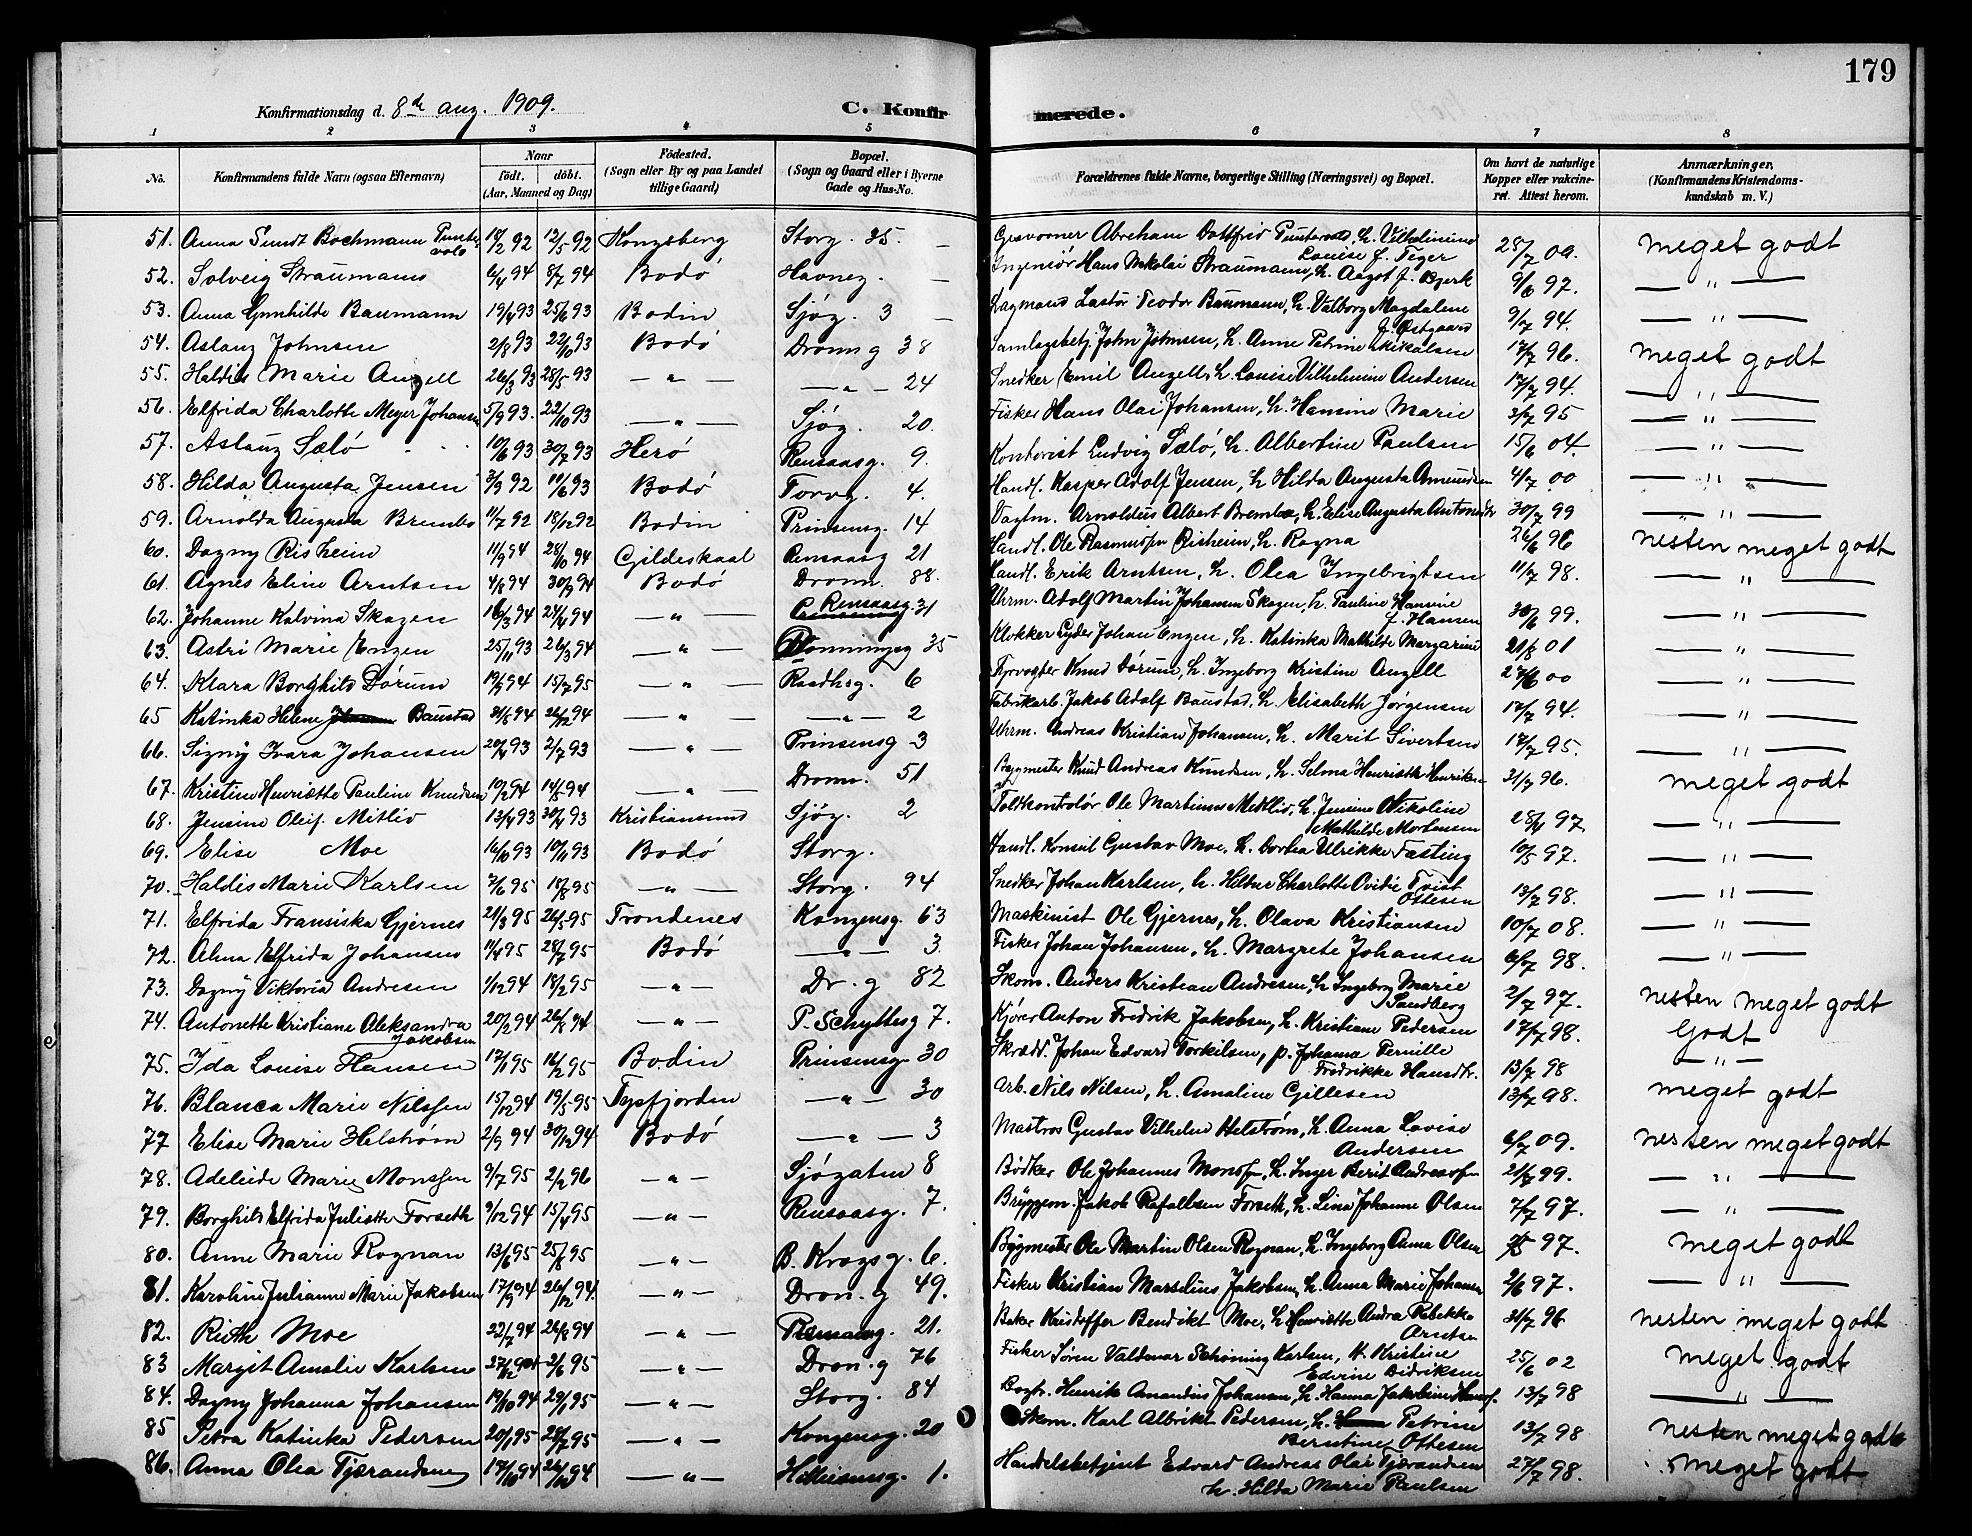 179
Konfirmationsdag d. 8de aug. 1909. C. Konfirmerede.
1 2 3 4 5 6 7 8
No. Konfirmandens fulde Navn (ogsaa Efternavn) Naar født. døbt. (Aar, Maaned og Dag) Fødested. (Sogn eller By og paa Landet tillige Gaard) Bopæl. (Sogn og Gaard eller i Byerne Gade og Hus-No. Forældrenes fulde Navne, borgerlige Stilling (Næringsvei) og Bopæl. Om havt de naturlige Kopper eller vakcineret. Attest herom. Anmærkninger, (Konfirmandens Kristendomskundskab m. V.)
51. Anna Sundt Bochmann 92 12/5 92 Kongsberg Storg. 35. Louise f. Teger 28/7 09. meget godt
52. Solveig Straumann 6/4 94 8/7 94 Bodø Havneg. Ingeniør Hans Nikolai Straumann, h. Aagot f. Bjerk 9/6 97. — " —
53. Anna Gunhilde Baumann 19/4 93 25/6 93 Bodin Sjøg. 3 Teodor Baumann, h. Valborg Magdalene f. Østgaard 9/7 94. — " —
54. Aslaug Johnsen 2/8 93 22/10 93 Bodø Dronn g 38 Samlagsbetj. John Johnsen, h. Anne Petrine Mikalsen 17/7 96. meget godt
55. Haldis Marie Angell 26/3 93 28/5 93 — " — — " — 24 Snedker Emil Angell, h. Louise Vilhelmine Andersen 17/7 94. — " —
56. Elfrida Charlotte Meyer Johansen 5/9 93. 22/10 93 — " — Sjøg. 20. Fisker Hans Olai Johansen, h. Hansine Marie 95 — " —
57. Aslaug Sælø 10/6 93 30/7 93 Herø Rensaasg. 9. Kontorist Ludvig Sælø, h. Albertine Paulsen 15/6 04. — " —
58. Hilda Augusta Jensen 92 11/6 93 Bodø Torvg. 4. Handl. Kasper Adolf Jensen, h. Hilda Augusta Amundsen 4/7 00 — " —
59. Arnolda Augusta Brembo 11/7 92 18/12 92 Bodin Prinsensg. 14 Vagtm. Arnoldus Albert Brembo, h. Elise Augusta 30/7 99 — " —
60. Dagny Risheim 11/9 94 28/10 94 Gildeskaal Rensaasg 21 Handl. Ole Rasmussen Risheim, h. Ragna 26/6 96 nesten meget godt
61. Agnes Eline Arntsen 4/8 94 30/9 94 Bodø Dronn. 88. Handl. Erik Arntsen, h. Olea Ingebrigtsen 11/7 98. — " —
62. Johanne Kalvina Skagen 16/3 94 24/4 94 — " — Rensaasg 31 Uhrm. Adolf Martin Johansen Skagen, h. Pauline Hansine f. Hansen 30/6 99. — " —
63. Astri Marie Engen 25/11 93 26/3 94 — " — Dronningeg 35 Klokker Lyder Johan Engen, h. Katinka Mathilde Margarine 21/8 01 — " —
64. Klara Borghild Dørum 19/9 94 15/7 95 — " — Raadhsg. 6 Fyrvogter Knud Dørum, h. Ingeborg Kristine Angell 27/6 00 — " —
65 Katinka Helene Baustad 94 26/12 94 — " — — " — 2 Fabrikarb. Jakob Adolf Baustad, h. Elisabeth Jørgensen 17/7 94. — " —
66. Signy Ivara Johansen 20/4 93 2/7 93 — " — Prinsensg 3 Uhrm. Andreas Kristian Johansen, h. Marit Sivertsen 17/7 95. — " —
67. Kristine Henriette Pauline Knudsen 10/2 94 14/5 94 — " — Dronn. 51 Bygmester Knud Andreas Knudsen, h. Selma Henriette Henriksen 21/7 96. meget godt
68. Jensine Oleif. Mitliv 13/4 93 93 Kristiansund Sjøg. 2 Toldkontrolør Ole Martinus Metliv, h. Jensine Nikoline Mathilde Mortensen 28/4 97. — " —
69. Elise Moe 16/10 93 10/11 93 Bodø Storg. Handl. Konsul Gustav Moe, h. Dortea Ulrikke Fasting 10/5 97. — " —
70. Haldis Marie Karlsen 7/6 95 18/8 95 — " — Storg. 94 Snedker Johan Karlsen, h. Hilbur Charlotte Ovidie Tvist Ottesen 13/7 98. — " —
71. Elfrida Fransiska Gjernes 21/3 95 26/5 95 Trondenes Kongensg. 63 Maskinist Ole Gjernes, h. Olava Kristiansen 10/7 08. — " —
72. Alma Elfrida Johansen 11/4 95 28/7 95 Bodø — " — 3 Fisker Johan Johansen, h. Margrete Johansen 6/7 98. — " —
73. Dagny Viktoria Andresen 1/12 94 18/2 95 — " — Dr. g 82 Skom. Anders Kristian Andresen, h. Ingeborg Marie Sandberg 2/7 97. nesten meget godt
74. Antonette Kristiane Aleksandra Jakobsen 20/2 94 26/8 94 — " — P. Schyttesg 7. Kjører Anton Fredrik Jakobsen, h. Kristiane Pedersen 17/7 98. Godt
75. Ida Louise Hansen 17/1 95 16/2 95 Bodin Prinsensg 30 Skrædd. Johan Edvard Torkilsen, p. Johanna Pernille Fredrikke Hansdtr. 13/7 98 — " —
76. Blanca Marie Nilssen 15/12 94 19/5 95 Tysfjorden — " — 30 Arb. Nils Nilsen, h. Amaline Gillesen 13/7 98. meget godt
77 Elise Marie Helstrøm 2/9 94 30/12 94 Bodø — " — 3 Matros Gustav Vilhelm Helstrøm, h. Anna Lovise Andersen 6/7 09. nesten meget godt
78. Adeleide Marie Monssen 9/7 95 2/2 96 — " — Sjøgaten 8 Bødker Ole Johannes Monsen, h. Inger Berit Andreasen 21/8 99. — " —
79. Borghild Elfrida Juliette Forseth 9/12 94 15/4 95 — " — Rensaasg. 7. Bryggem. Jakob Rafaelsen Forseth, h. Lina Johanne Olsen 7/7 97. — " —
80. Anne Marie Rognan 13/6 95 25/8 95 — " — B. Krogsg. 6. Bygmester Ole Martin Olsen Rognan, h. Ingeborg Anna Olsen 97. meget godt
81. Karoline Julianne Marie Jakobsen 17/9 94 26/12 94. — " — Dron. g 49. Fisker Kristian Marselius Jakobsen, h. Anna Marie Johansen 2/6 97. — " —
82. Ruth Moe 22/7 94 26/8 94 — " — Rensaasg. 21. Baker Kristoffer Bendikt Moe, h. Henriette Andrea Rebekka Arntsen 21/7 96 nesten meget godt
83 Margit Amalie Karlsen 27/12 94 2/6 95 — " — Dron. g 76 Fisker Søren Valdemar Schøning Karlsen, h. Kristine Edvine Didriksen 25/6 02 meget godt
84. Dagny Johanna Johansen 19/10 94 29/1 95 — " — Storg. 84 Henrik Amandus Johansen, h. Hanna Jakobine 13/7 98 — " —
85 Petra Katinka Pedersen 20/1 95 28/7 95 — " — Kongensg. 20 Skom. Karl Albrikt Pedersen, h. Petrine Berntine Ottesen 13/7 98 nesten meget godt
86. Anna Olea Tjærandsen 17/10 94 26/12 94 — " — 1. Handelsbetjent Edvard Andreas Olai Tjærandsen h. Hilda Marie Paulsen 27/7 98. meget godt